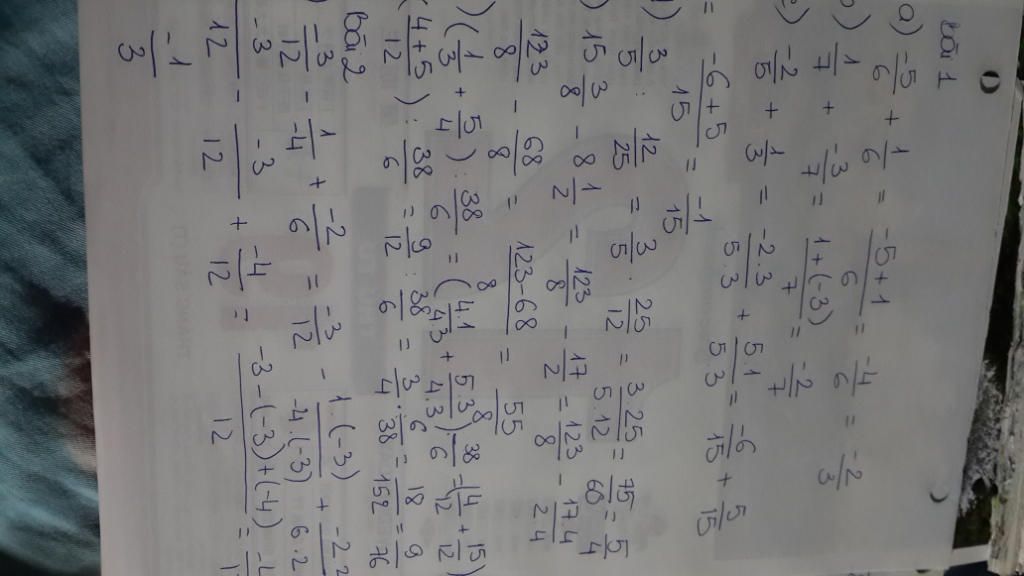 Bài 1
a) -5/6 + 1/6 = -5+1/6 = -4/6 = -2/3
b) 1/7 + -3/7 = 1+(-3)/7 = -2/7
c) -2/5 + 1/3 = -2.3/5.3 + 5.1/5.3 = -6/15 + 5/15
= -6+5/15 = -1/15
d) 3/5 : 12/25 = 3/5 . 25/12 = 3.25/5.12 = 75/60 = 5/4
) 15 3/8 - 8 1/2 = 123/8 - 17/2 = 123/8 - 17.4/2.4
123/8 - 68/8 = 123-68/8 = 55/8
) (1/3 + 5/4) : 38/6 = (4.1/4.3 + 5.3/4.3) : 38/6 = (4/12 + 15/12)
(4+5/12) : 38/6 = 9/12 : 38/6 = 3/4 . 6/38 = 18/152 = 9/76
Bài 2
) -3/12 - 1/-4 + -2/6 = -3/12 - 1(-3)/-4.(-3) + -2.2/6.2
-3/12 - -3/12 + -4/12 = -3-(-3)+(-4)/12 = -4/1
-1/3